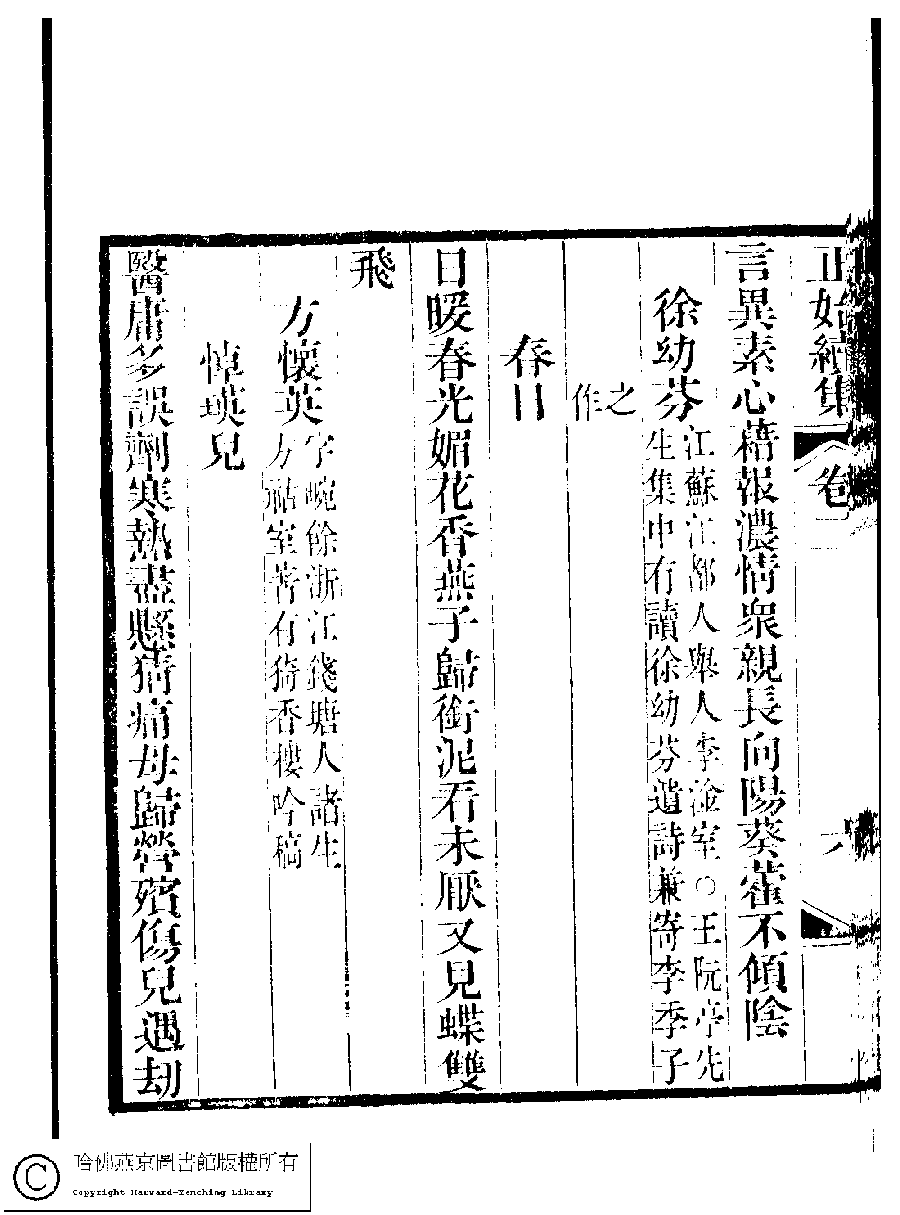 正始續集 卷二 六
言異素心藉報濃情衆親長向陽葵藿不傾陰
徐幼芬 江蘇江都人舉人李淦室○王阮亭先
生集中有讀徐幼芬遺詩兼寄李季子
之
作
春日
日暖春光媚花香燕子歸銜泥看未厭又見蝶雙
飛
方懷英 字畹餘浙江錢塘人諸生
方 室著有猗香樓吟稿
悼瑛兒
醫庸多誤劑寒熱盡懸猜痛母歸營殯傷兒遇劫
哈佛燕京圖書館版權所有
Copyright Harvard-Yenching Library